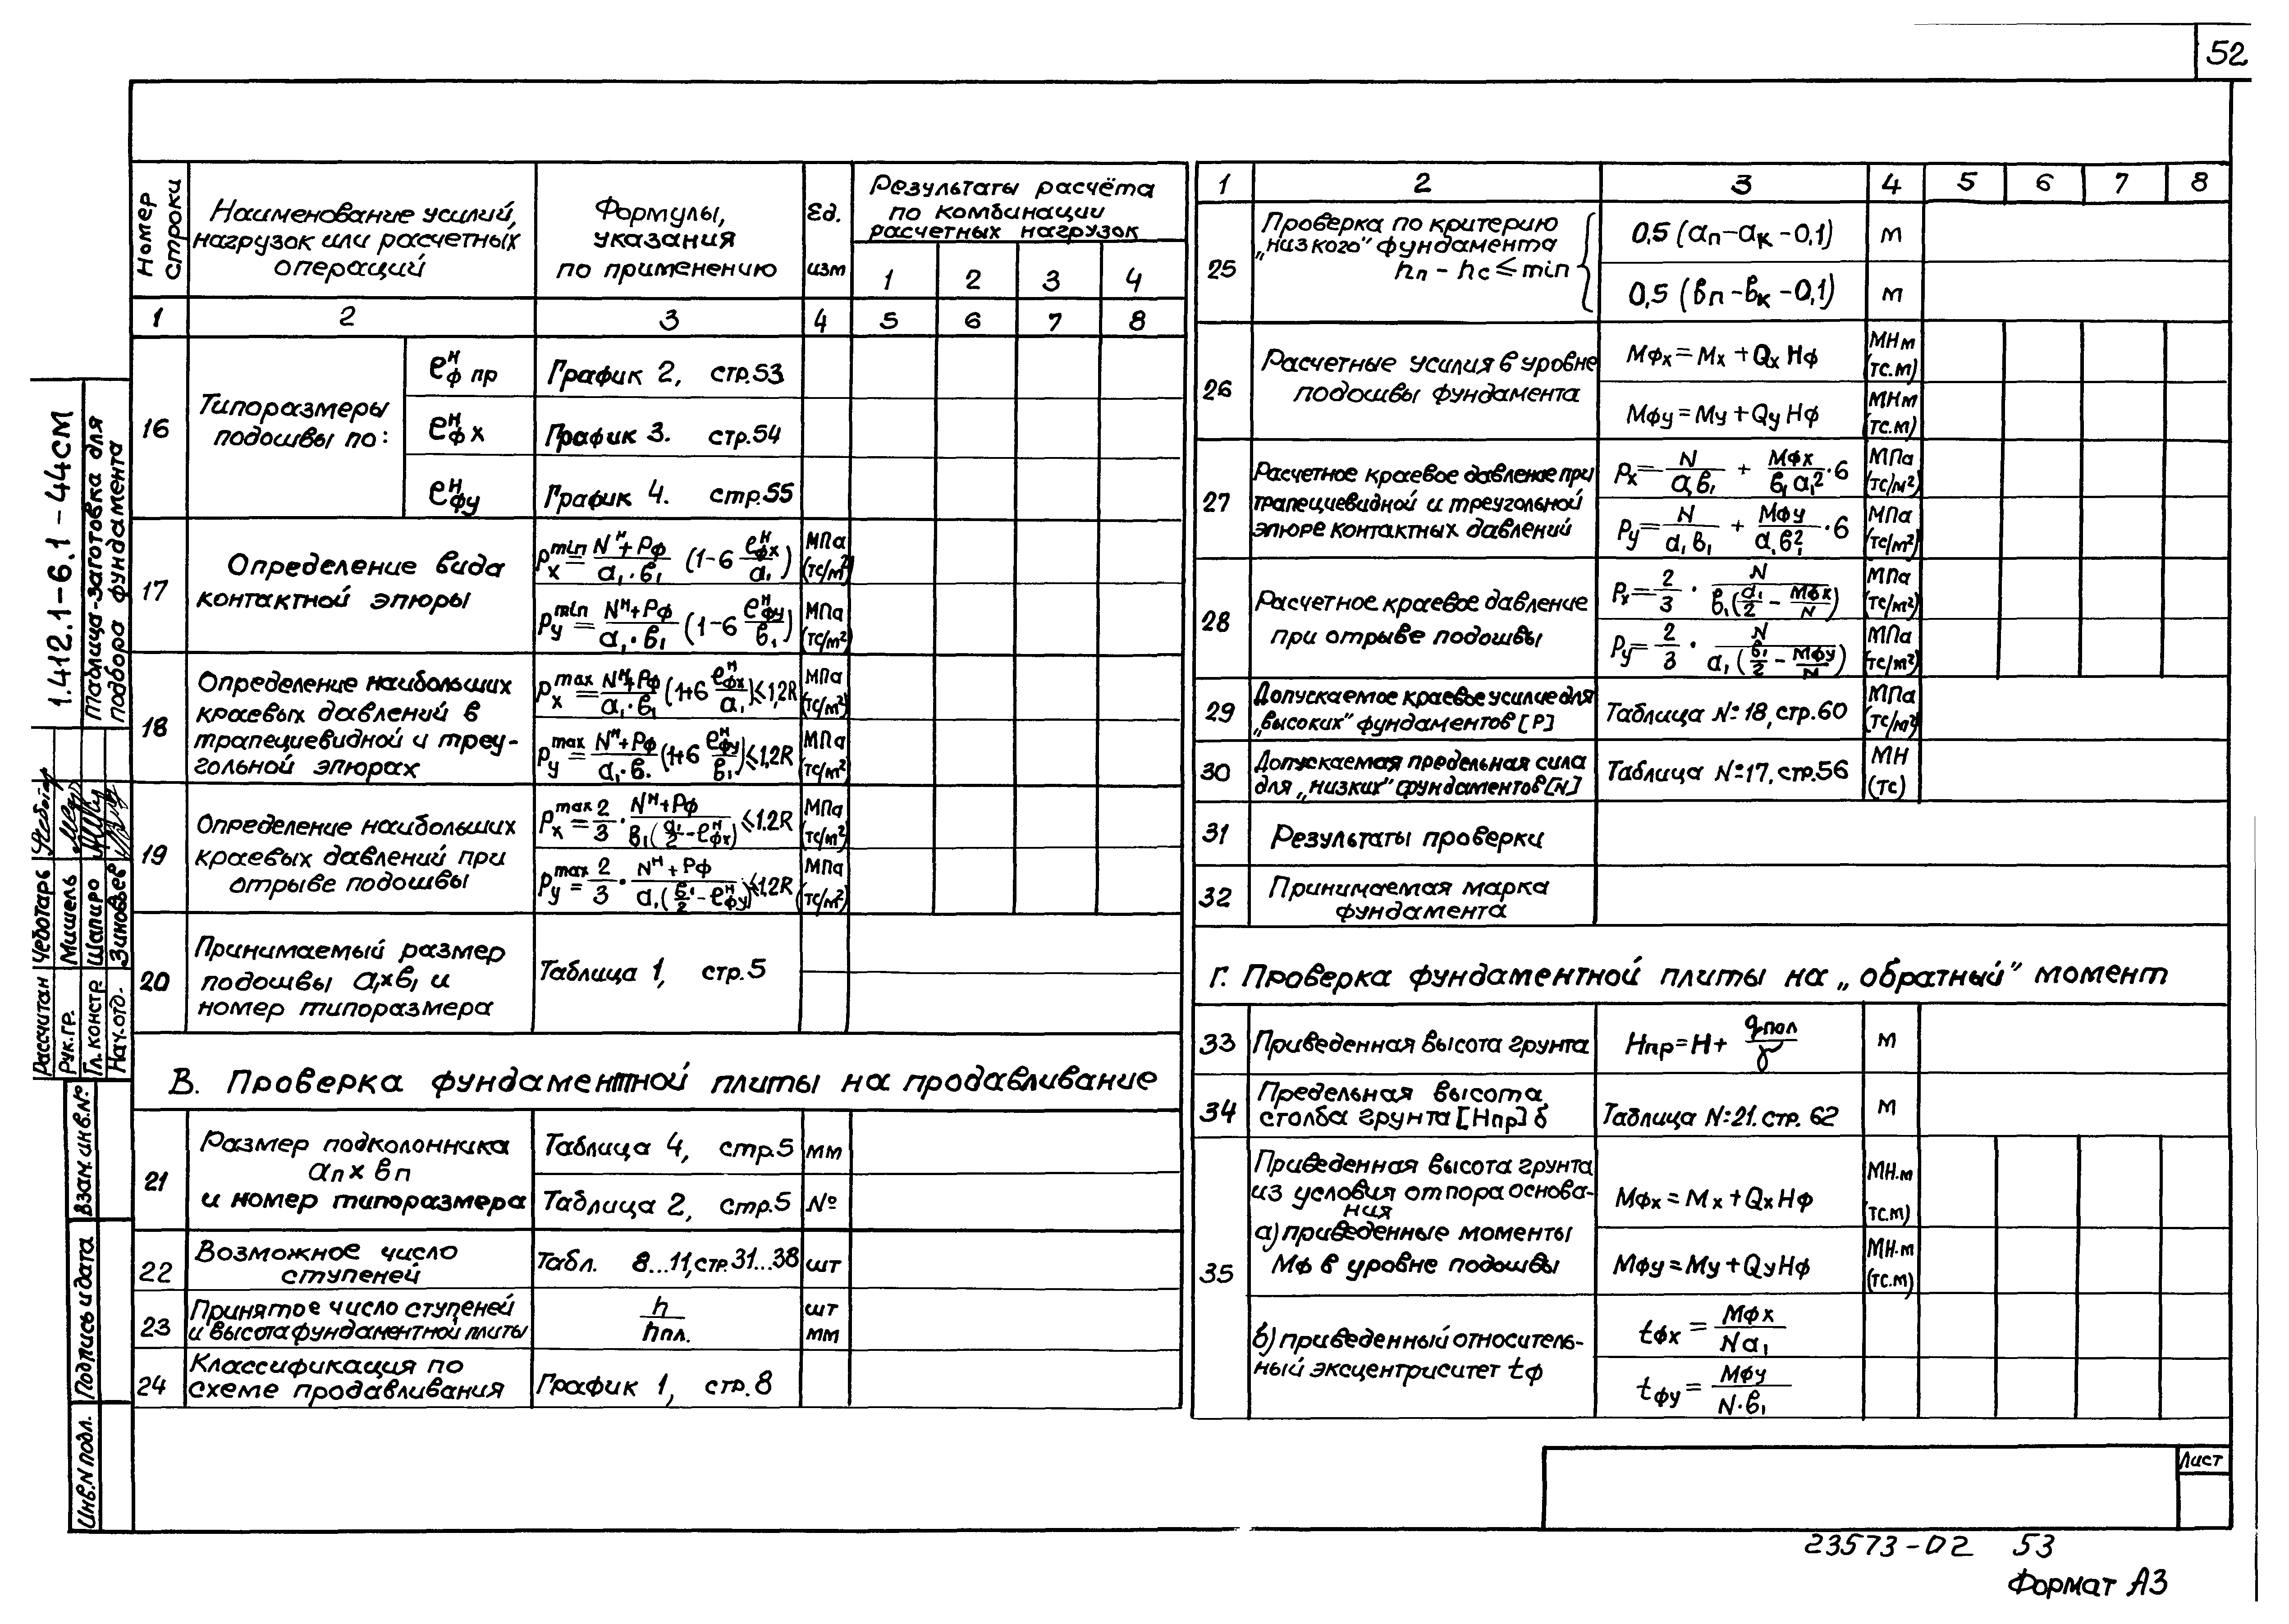 52
Номер строки
Наименование усилий, нагрузок или расчетных операций
Формулы, указания по применению
Ед. изм
Результаты расчёта по комбинации расчетных нагрузок
1 2 3 4
1 2 3 4 5 6 7 8
16 Типоразмеры подошвы по:
eᴴф пр График 2, стр.53
eᴴфx График 3. стр.54
eᴴфу График 4. стр.55
17 Определение вида контактной эпюры
Pₓ min = (Nᴴ+Pф)/(a₁·в₁) (1-6 eᴴфx/a₁) МПа (тс/м²)
Pу min = (Nᴴ+Pф)/(a₁·в₁) (1-6 eᴴфу/в₁) МПа (тс/м²)
18 Определение наибольших краевых давлений в трапециевидной и треугольной эпюрах
Pₓ max = (Nᴴ+Pф)/(a₁·в₁) (1+6 eᴴфx/a₁) ≤ 1,2R МПа (тс/м²)
Pу max = (Nᴴ+Pф)/(a₁·в.) (1+6 eᴴфу/в₁) ≤ 1,2R МПа (тс/м²)
19 Определение наибольших краевых давлений при отрыве подошвы
Pₓ max = 2/3 · (Nᴴ+Pф)/(в₁(a₁/2 - eᴴфx)) ≤ 1.2R МПа (тс/м²)
Pу max = 2/3 · (Nᴴ+Pф)/(a₁(в₁/2 - eᴴфу)) ≤ 1.2R МПа (тс/м²)
20 Принимаемый размер подошвы a₁xв₁ и номер типоразмера
Таблица 1, стр.5
В. Проверка фундаментной плиты на продавливание
21 Размер подколонника aп x вп и номер типоразмера
Таблица 4, стр.5 мм
Таблица 2, стр.5 №
22 Возможное число ступеней
Табл. 8...11, стр.31...38 шт
23 Принятое число ступеней и высота фундаментной плиты
h/hпл. шт мм
24 Классификация по схеме продавливания
График 1, стр.8
1 2 3 4 5 6 7 8
25 Проверка по критерию „низкого" фундамента hп - hс ≤ min
0,5 (aп-aк-0,1) м
0,5 (вп-вк-0,1) м
26 Расчетные усилия в уровне подошвы фундамента
Mфx = Mx + Qx Hф МНм (тс.м)
Mфу = Mу + Qу Hф МНм (тс.м)
27 Расчетное краевое давление при трапециевидной и треугольной эпюре контактных давлений
Px = N/(a₁в₁) + Mфx/(в₁a₁²)·6 МПа (тс/м²)
Pу = N/(a₁в₁) + Mфу/(a₁в₁²)·6 МПа (тс/м²)
28 Расчетное краевое давление при отрыве подошвы
Px = 2/3 · N/(в₁(a₁/2 - Mфx/N)) МПа (тс/м²)
Pу = 2/3 · N/(a₁(в₁/2 - Mфу/N)) МПа (тс/м²)
29 Допускаемое краевое усилие для „высоких" фундаментов [P]
Таблица №18, стр.60 МПа (тс/м²)
30 Допускаемая предельная сила для „низких" фундаментов [N]
Таблица №17, стр.56 МН (тс)
31 Результаты проверки
32 Принимаемая марка фундамента
Г. Проверка фундаментной плиты на „обратный" момент
33 Приведенная высота грунта
Hпр = H + qпол/γ м
34 Предельная высота столба грунта [Hпр] б
Таблица №21. стр. 62 м
35 Приведенная высота грунта из условия отпора основания
а) приведенные моменты Mф в уровне подошвы
Mфx = Mx + QxHф МН.м тс.м)
Mфу = Mу + QуHф МН.м (тс.м)
б) приведенный относительный эксцентриситет tф
tфx = Mфx/Na₁
tфу = Mфу/N·в₁
1.412.1-6.1-44СМ
таблица-заготовка для подбора фундамента
Рассчитан Чеботарь
Рук.гр. Мишель
Гл.констр Шапиро
Нач.отд. Зиновьев
Взам.инв.№
Подпись и дата
Инв.N подл.
Лист
23573-02 53
Формат А3